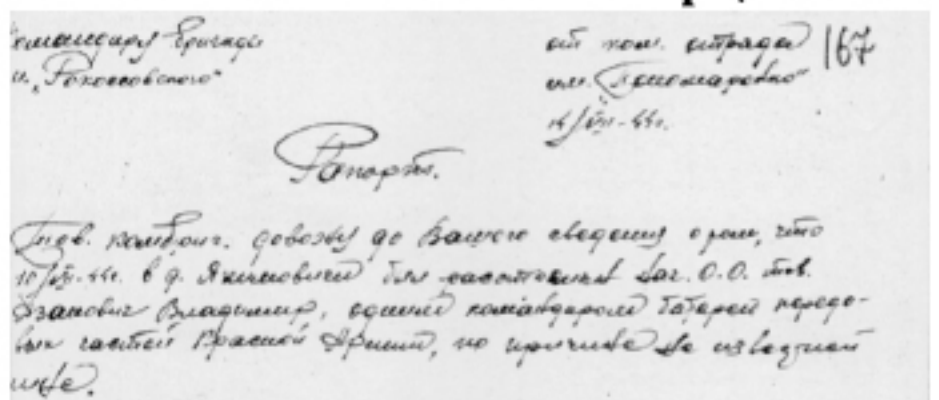 Командиру бригады
и. „Рокоссовского"
от ком. отряда
им. „Пономаренко"
167
14/VII-44г.
Рапорт.
Тов. комбриг. довожу до Вашего сведения о том, что
10/VII-44г. в д. Якимовичи был Нач. О.О. тов.
Владимир, одним командиром батареи передо-
вых частей Красной Армии, по причине не известной
мне.